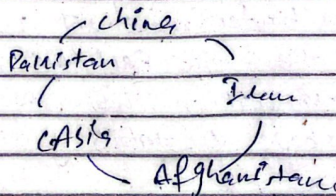 China
Pakistan
Iran
CAsia
Afghanistan